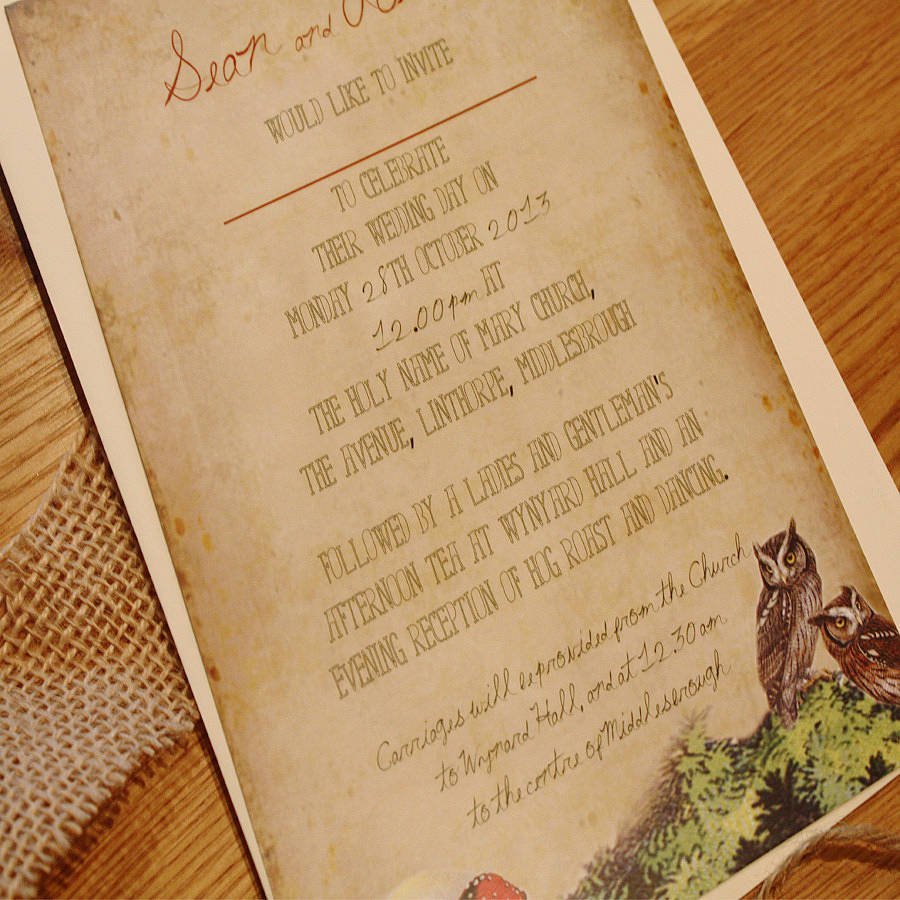 Sean and
WOULD LIKE TO INVITE
TO CELEBRATE
THEIR WEDDING DAY ON
MONDAY 28TH OCTOBER 2013
12.00pm AT
THE HOLY NAME OF MARY CHURCH,
THE AVENUE, LINTHORPE, MIDDLESBROUGH
FOLLOWED BY A LADIES AND GENTLEMAN'S
AFTERNOON TEA AT WYNYARD HALL AND AN
EVENING RECEPTION OF HOG ROAST AND DANCING.
Carriages will be provided from the Church
to Wynyard Hall, and at 12.30am
to the centre of Middlesbrough